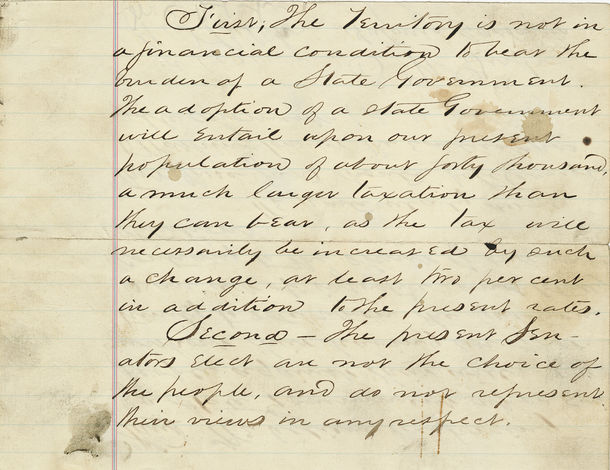 First, The Territory is not in
a financial condition to bear the
burden of a State Government.
The adoption of a State Government
will entail upon our present
population of about forty thousand,
a much larger taxation than
they can bear, as the tax will
necessarily be increased by such
a change, at least two per cent
in addition to the present rates.
Second - The present Sen-
ators elect are not the choice of
the people, and do not represent
their views in any respect.